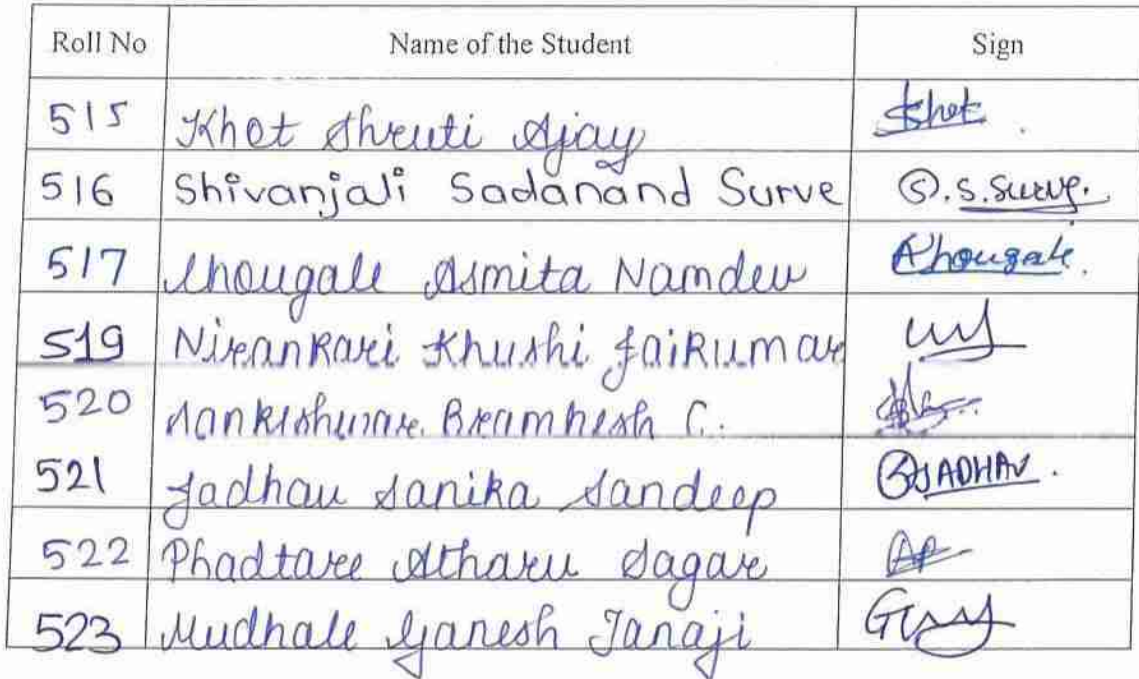 Roll No Name of the Student Sign
515 Khot Shruti Ajay Khot
516 Shivanjali Sadanand Surve S. S. Surve.
517 Chougale Asmita Namdev Chougale.
519 Nirankari Khushi Jaikumar
520 Sankeshware Bramhesh C.
521 Jadhav Sanika Sandeep SJADHAV.
522 Phadtare Atharv Sagar
523 Mudhale Ganesh Tanaji